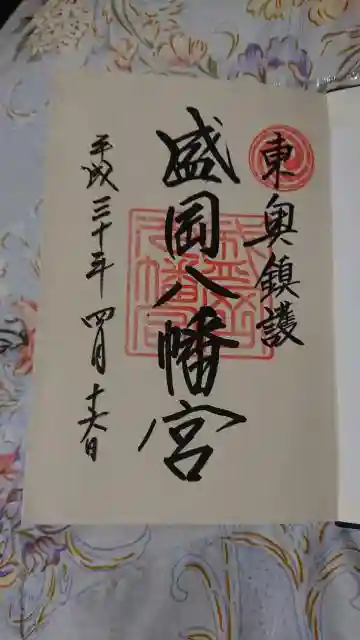 東奥鎮護
盛岡八幡宮
平成三十年四月十六日